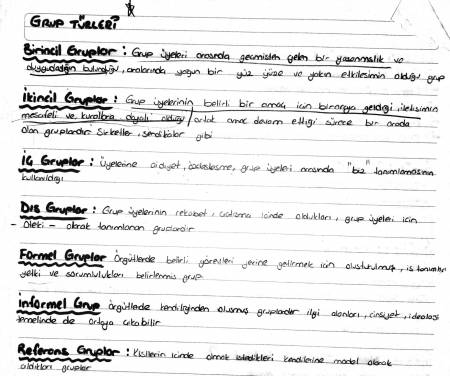 GRUP TÜRLERİ
Birincil Gruplar : Grup üyeleri arasında geçmişten gelen bir yaşanmışlık ve
duygudaşlığın bulunduğu, aralarında yoğun bir yüz yüze ve yakın etkileşimin olduğu grup
İkincil Gruplar : Grup üyelerinin belirli bir amaç için biraraya geldiği, iletişimin
mesafeli ve kurallara dayalı olduğu / ortak amaç devam ettiği sürece bir arada
olan gruplardır Şirketler, sendikalar gibi
İç Gruplar : Üyelerine aidiyet, özdeşleşme, grup üyeleri arasında "biz" tanımlamasının
kullanıldığı
Dış Gruplar : Grup üyelerinin rekabet, çatışma içinde oldukları, grup üyeleri için
- öteki - olarak tanımlanan gruplardır
Formel Gruplar Örgütlerde belirli görevleri yerine getirmek için oluşturulmuş, iş tanımları
yetki ve sorumlulukları belirlenmiş grup
İnformel Grup Örgütlerde kendiliğinden oluşmuş gruplardır ilgi alanları, cinsiyet, ideoloji
temelinde de ortaya çıkabilir
Referans Gruplar : Kişilerin içinde olmak istedikleri kendilerine model olarak
aldıkları gruplar